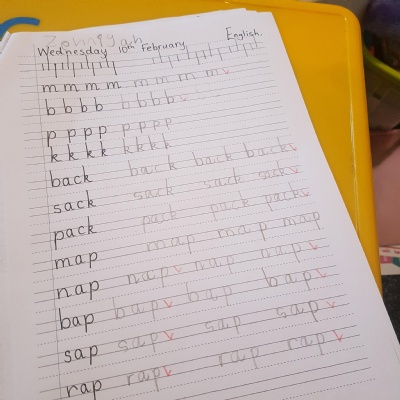 Zohniyah
Wednesday 10th February English.
m m m m m m m m
b b b b b b b b
p p p p p p p p
k k k k k k k k
back back back back
sack sack sack sack
pack pack pack pack
map map map map
nap nap nap nap
bap bap bap bap
sap sap sap sap
rap rap rap rap